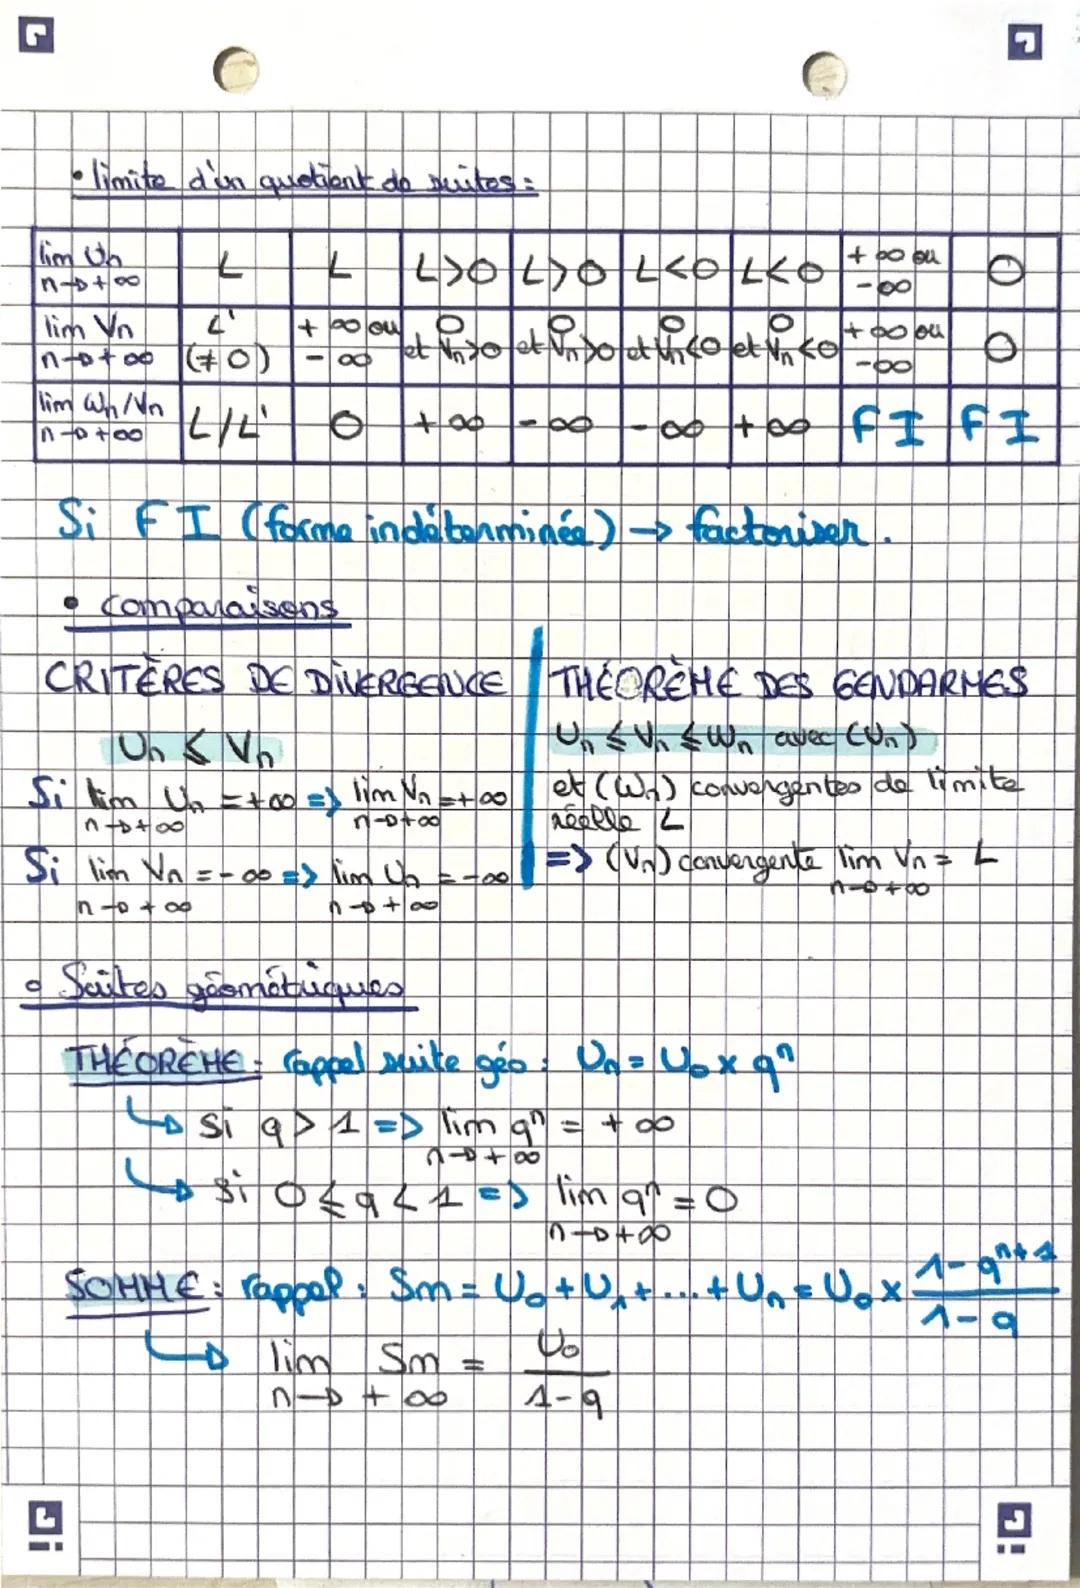 • limite d'un quotient de suites :
lim Un n→+∞ | L | L | L>0 | L>0 | L<0 | L<0 | +∞ ou -∞ | 0
lim Vn n→+∞ | L' (≠0) | +∞ ou -∞ | 0 et Vn>0 | 0 et Vn>0 | 0 et Vn<0 | 0 et Vn<0 | +∞ ou -∞ | 0
lim Un/Vn n→+∞ | L/L' | 0 | +∞ | -∞ | -∞ | +∞ | FI | FI
Si FI (forme indéterminée) → factoriser.
• comparaisons
CRITÈRES DE DIVERGENCE
Un ≤ Vn
Si lim Un = +∞ => lim Vn = +∞
n→+∞ n→+∞
Si lim Vn = -∞ => lim Un = -∞
n→+∞ n→+∞
THÉORÈME DES GENDARMES
Un ≤ Vn ≤ Wn avec (Un)
et (Wn) convergentes de limite
réelle L
=> (Vn) convergente lim Vn = L
n→+∞
• Suites géométriques
THÉORÈME : rappel suite géo : Un = U0 × qⁿ
↳ si q > 1 => lim qⁿ = +∞
n→+∞
↳ si 0 ≤ q < 1 => lim qⁿ = 0
n→+∞
SOMME : rappel : Sm = U0 + U1 + ... + Un = U0 × (1-qⁿ⁺¹)/(1-q)
↳ lim Sm = U0/(1-q)
n→+∞